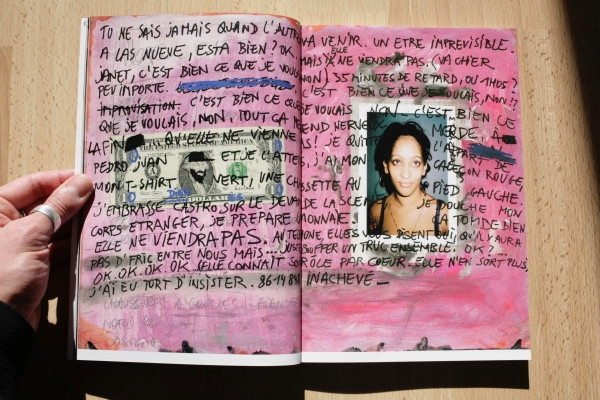 TU NE SAIS JAMAIS QUAND L'AUT A VENIR. UN ETRE IMPREVISIBLE.
A LAS NUEVE, ESTA BIEN? OK. MAIS ELLE NE VIENDRA PAS. (VA CHIER
JANET, C'EST BIEN CE QUE JE VOUL NON) 35 MINUTES DE RETARD, OU 1H05?
PEU IMPORTE. C'EST BIEN CE QUE JE VOULAIS, NON!?
IMPROVISATION. C'EST BIEN CE QUE VOULAIS NON. C'EST BIEN CE
QUE JE VOULAIS, NON! TOUT ÇA END NERVEU MERDE À
LA FIN QU'ELLE NE VIENNE PAS! JE QUITE L'APPART DE
PEDRO JUAN ET JE L'ATTE S. J'AI MON CALEÇON ROUGE,
MON T-SHIRT VERT, UNE CHAUSSETTE AU PIED GAUCHE.
J'EMBRASSE CASTRO SUR LE DEVANT DE LA SCENE JE DOUCHE MON
CORPS ETRANGER, JE PREPARE MONNAIE. ÇA TOMBE BIEN
ELLE NE VIENDRA PAS. AU TELEPHONE, ELLES VOUS DISENT OUI, QU'IL Y AURA
PAS D'FRIC ENTRE NOUS MAIS... JUST SOUFFLER UN TRUC ENSEMBLE. OK?...
OK. OK. OK. OK.. (ELLE CONNAIT SON RÔLE PAR COEUR. ELLE N'EN SORT PLUS,
J'AI EU TORT D'INSISTER.. INACHEVÉ _